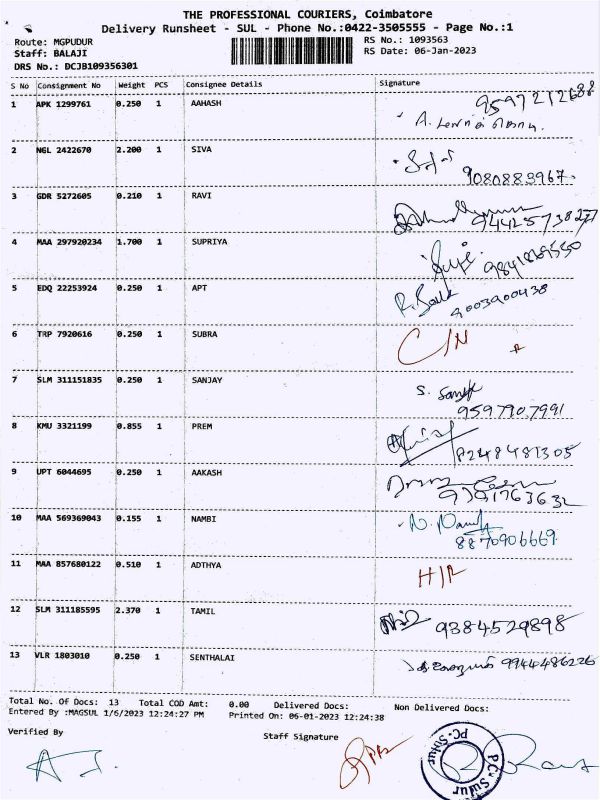 THE PROFESSIONAL COURIERS, Coimbatore
Delivery Runsheet - SUL - Phone No.:0422-3505555 - Page No.:1
Route: MGPUDUR RS No.: 1093563
Staff: BALAJI RS Date: 06-Jan-2023
DRS No.: DCJB109356301
S No Consignment No Weight PCS Consignee Details Signature
1 APK 1299761 0.250 1 AAHASH 9597212688
2 NGL 2422670 2.200 1 SIVA
9080883967.
3 GDR 5272605 0.210 1 RAVI
9442573827
4 MAA 297920234 1.700 1 SUPRIYA
5 EDQ 22253924 0.250 1 APT
9003900438
6 TRP 7920616 0.250 1 SUBRA C/N
7 SLM 311151835 0.250 1 SANJAY S.
9597907991
8 KMU 3321199 0.855 1 PREM
8248481305
9 UPT 6044695 0.250 1 AAKASH
9791763632
10 MAA 569369043 0.155 1 NAMBI N.
8870906669
11 MAA 857680122 0.510 1 ADTHYA H/R
12 SLM 311185595 2.370 1 TAMIL 9384529898
13 VLR 1803010 0.250 1 SENTHALAI 9944486226
Total No. Of Docs: 13 Total COD Amt: 0.00 Delivered Docs: Non Delivered Docs:
Entered By :MAGSUL 1/6/2023 12:24:27 PM Printed On: 06-01-2023 12:24:38
Verified By Staff Signature
PC-Sulur
PC-Sulur